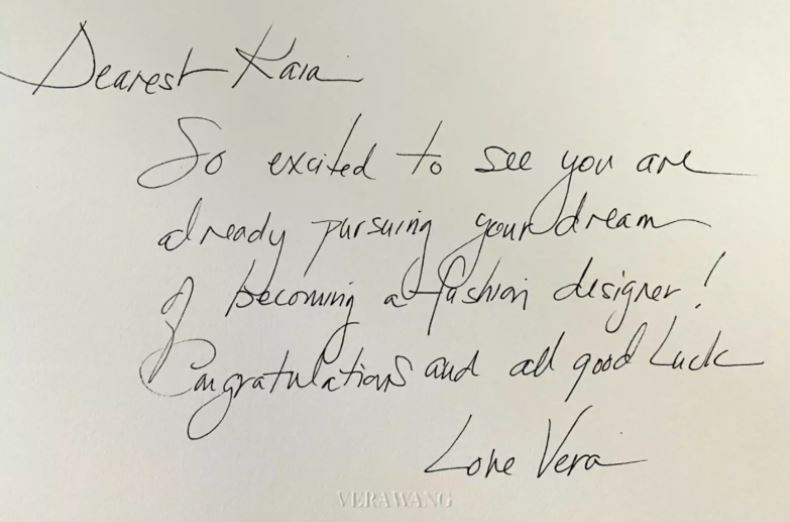 Dearest Kaia
So excited to see you are
already pursuing your dream
of becoming a fashion designer!
Congratulations and all good Luck
Love Vera
VERA WANG